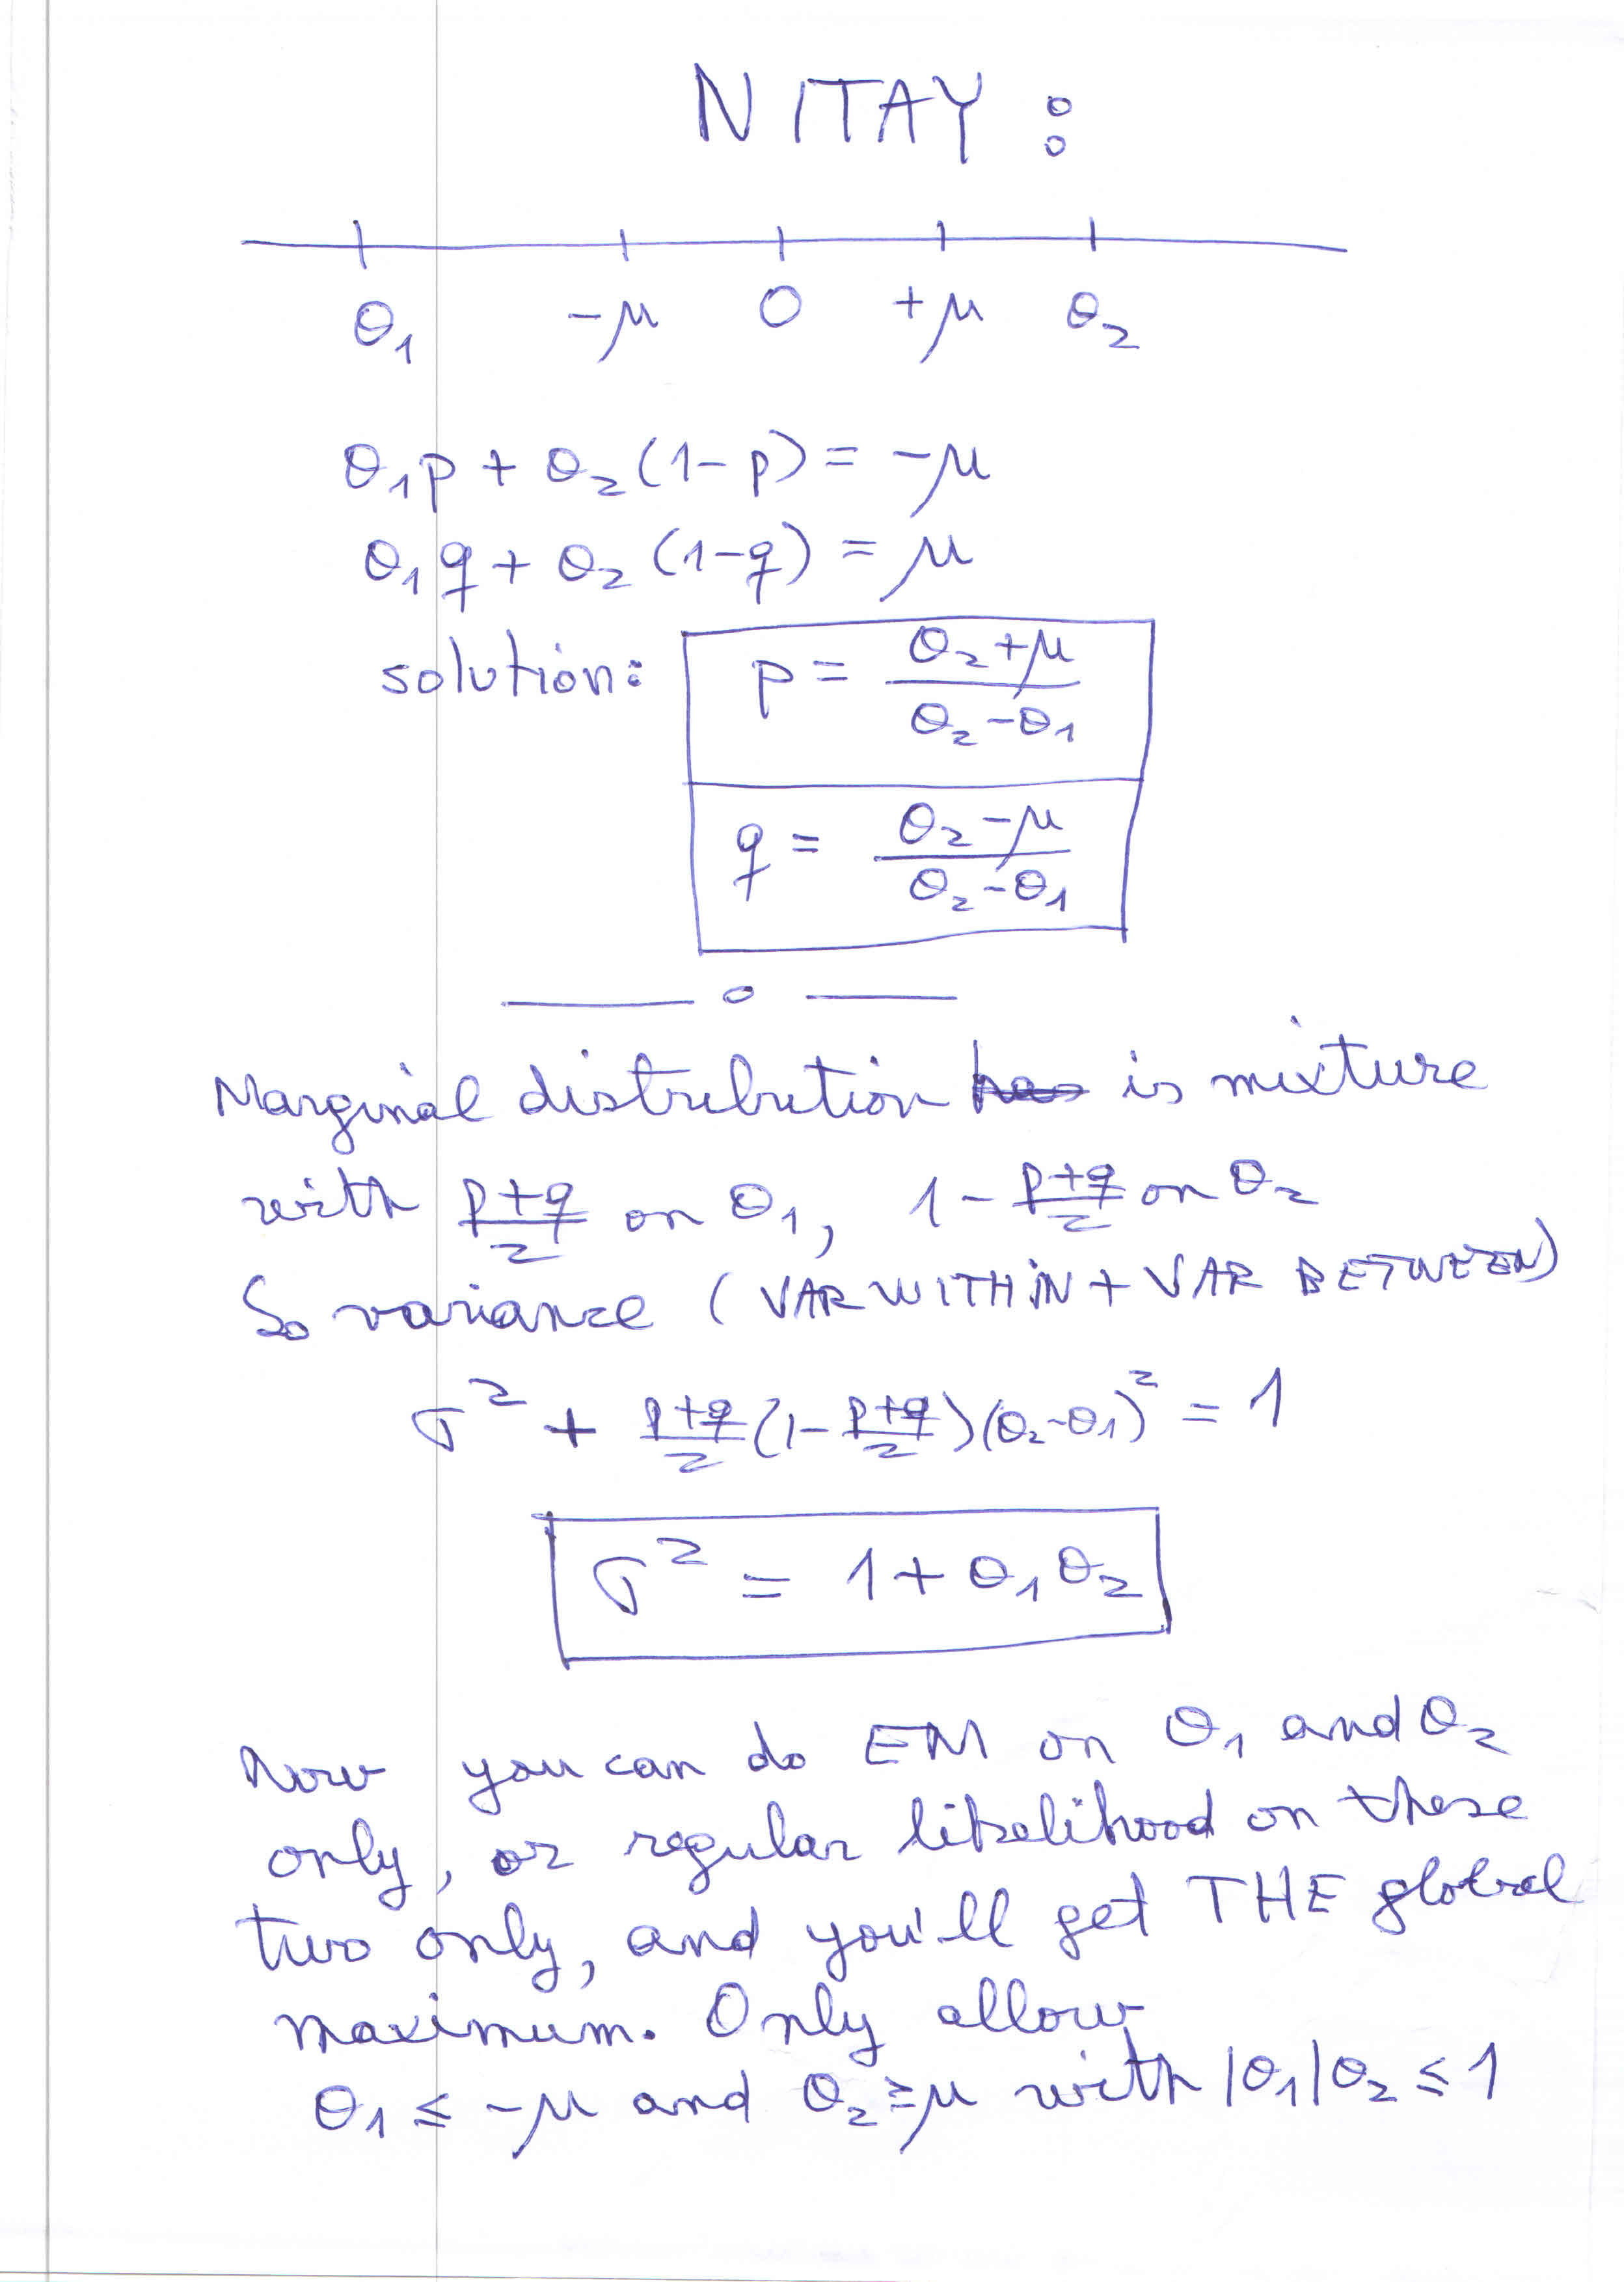 NITAY:
θ₁ -μ 0 +μ θ₂
θ₁p + θ₂(1-p) = -μ
θ₁q + θ₂(1-q) = μ
solution: p = (θ₂+μ)/(θ₂-θ₁)
q = (θ₂-μ)/(θ₂-θ₁)
Marginal distribution has is mixture
with (p+q)/2 on θ₁, 1 - (p+q)/2 on θ₂
So variance (VAR WITHIN + VAR BETWEEN)
σ² + (p+q)/2 (1 - (p+q)/2)(θ₂-θ₁)² = 1
σ² = 1 + θ₁θ₂
Now you can do EM on θ₁ and θ₂
only, or regular likelihood on these
two only, and you'll get THE global
maximum. Only allow
θ₁ ≤ -μ and θ₂ ≥ μ with |θ₁|θ₂ ≤ 1